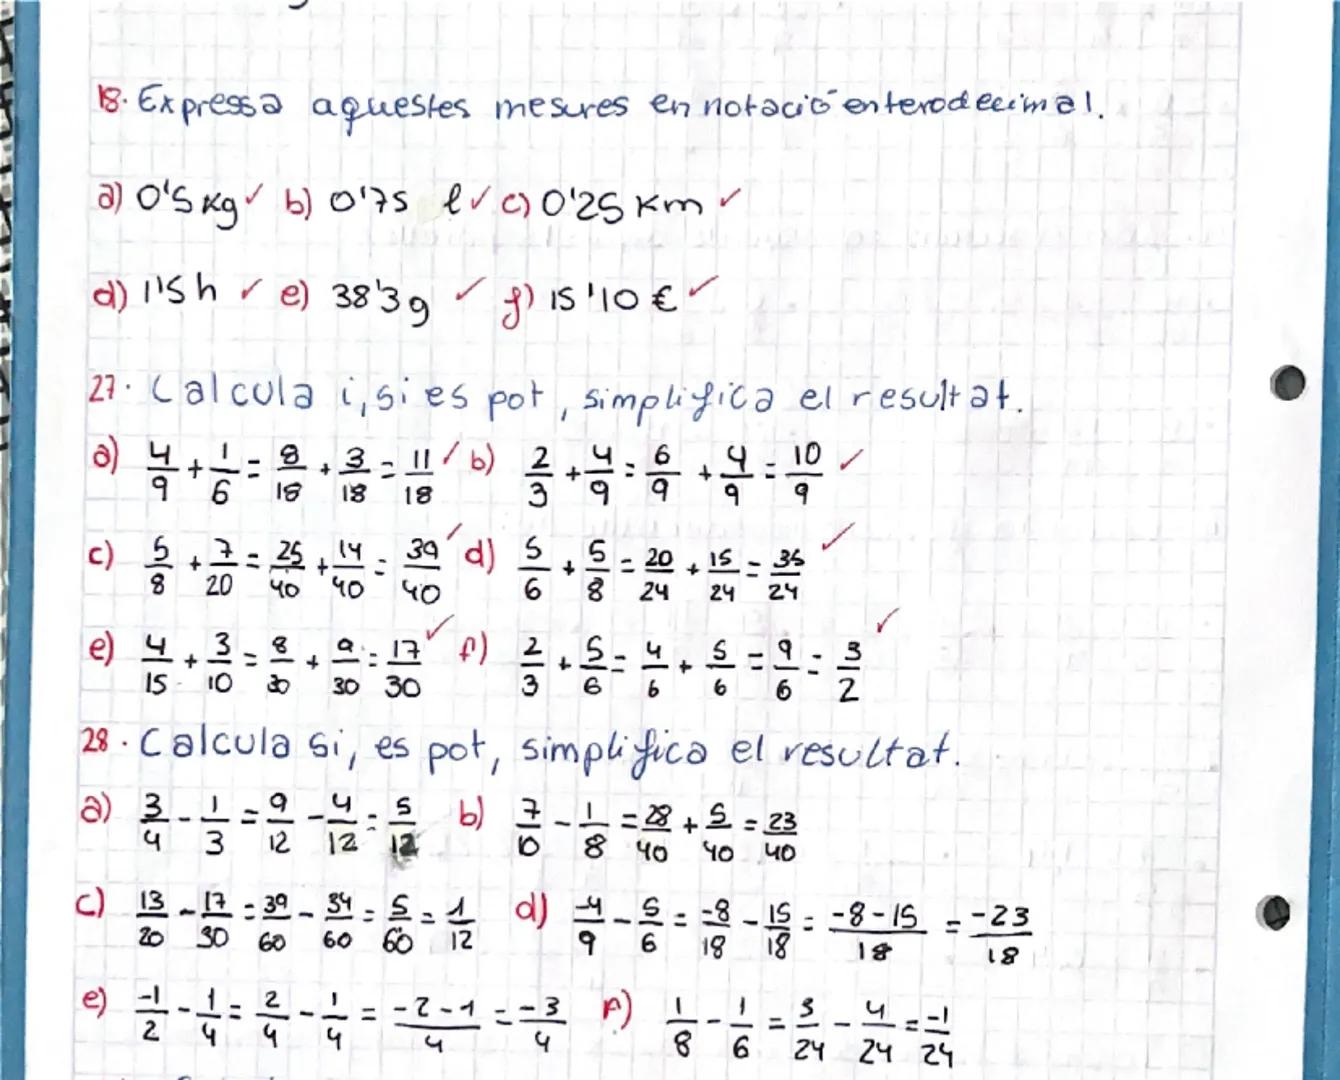 18. Expressa aquestes mesures en notació enterodecimal.
a) 0'5 kg ✓ b) 0'75 l ✓ c) 0'25 Km ✓
d) 1'5 h ✓ e) 38'3 g ✓ f) 15'10 € ✓
27. Calcula i, si es pot, simplifica el resultat.
a) 4/9 + 1/6 = 8/18 + 3/18 = 11/18 ✓ b) 2/3 + 4/9 = 6/9 + 4/9 = 10/9 ✓
c) 5/8 + 7/20 = 25/40 + 14/40 = 39/40 ✓ d) 5/6 + 5/8 = 20/24 + 15/24 = 35/24 ✓
e) 4/15 + 3/10 = 8/30 + 9/30 = 17/30 ✓ f) 2/3 + 5/6 = 4/6 + 5/6 = 9/6 = 3/2 ✓
28. Calcula si, es pot, simplifica el resultat.
a) 3/4 - 1/3 = 9/12 - 4/12 = 5/12 b) 7/10 - 1/8 = 28/40 + 5/40 = 23/40
c) 13/20 - 17/30 = 39/60 - 34/60 = 5/60 = 1/12 d) -4/9 - 5/6 = -8/18 - 15/18 = -8-15/18 = -23/18
e) -1/2 - 1/4 = 2/4 - 1/4 = -2-1/4 = -3/4 f) 1/8 - 1/6 = 3/24 - 4/24 = -1/24